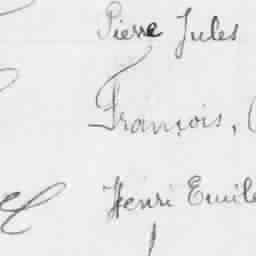 Pierre Jules
François,
Henri Emile